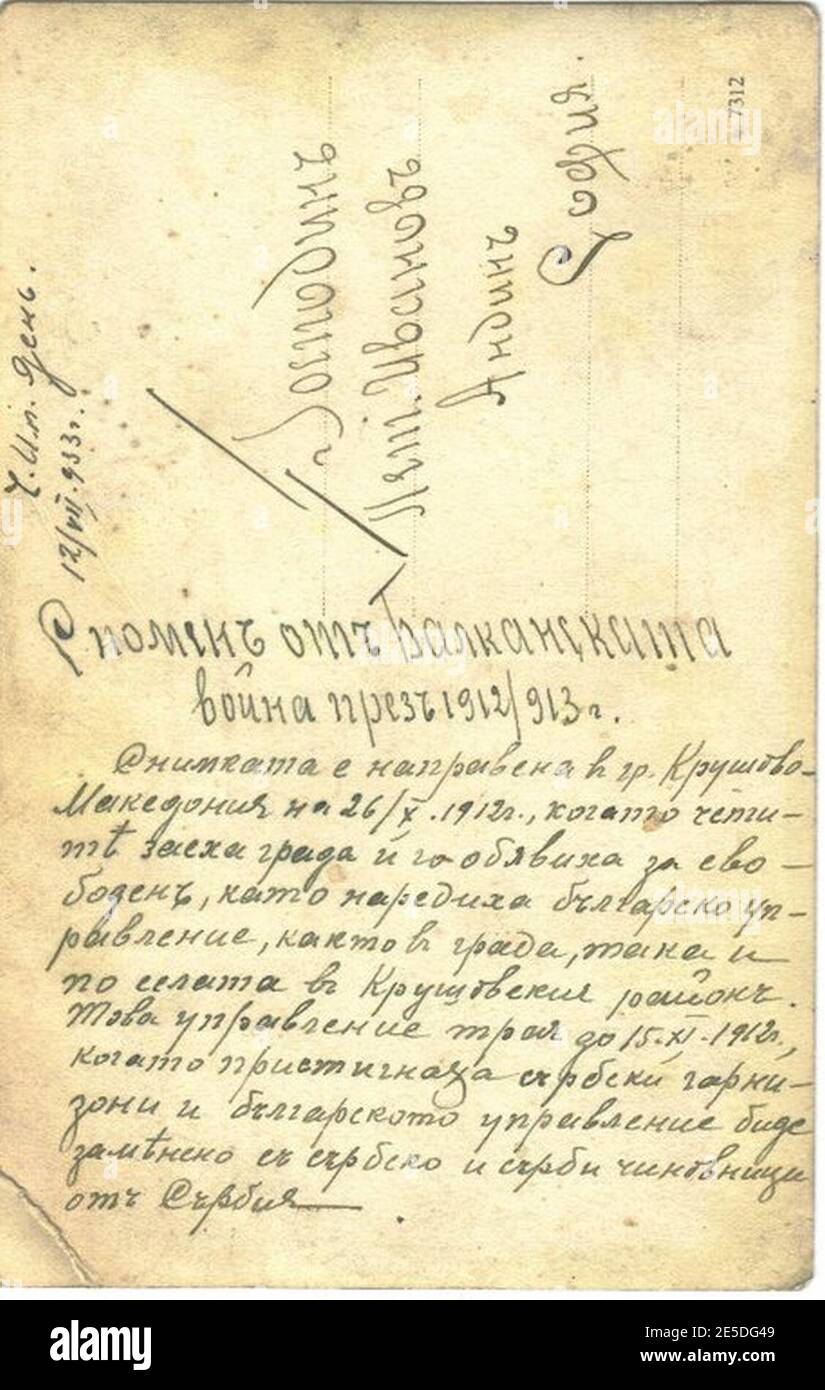 Ч. Им. День.
12/VII. 933 г.
Господинъ
Пет. Ивановъ
Андинъ
София.
7312
Споменъ отъ Балканската
война презъ 1912/913 г.
Снимката е направена въ гр. Крушово-
Македония на 26/X. 1912 г., когато чети-
тѣ заеха града и го обявиха за сво-
боденъ, като наредиха българско уп-
равление, както въ града, така и
по селата въ Крушовския районъ.
Това управление трая до 15.XI.1912 г.,
когато пристигнаха сърбски гарни-
зони и българското управление биде
замѣнено съ сърбско и сърби чиновници
отъ Сърбия
alamy
Image ID: 2E5DG49
www.alamy.com